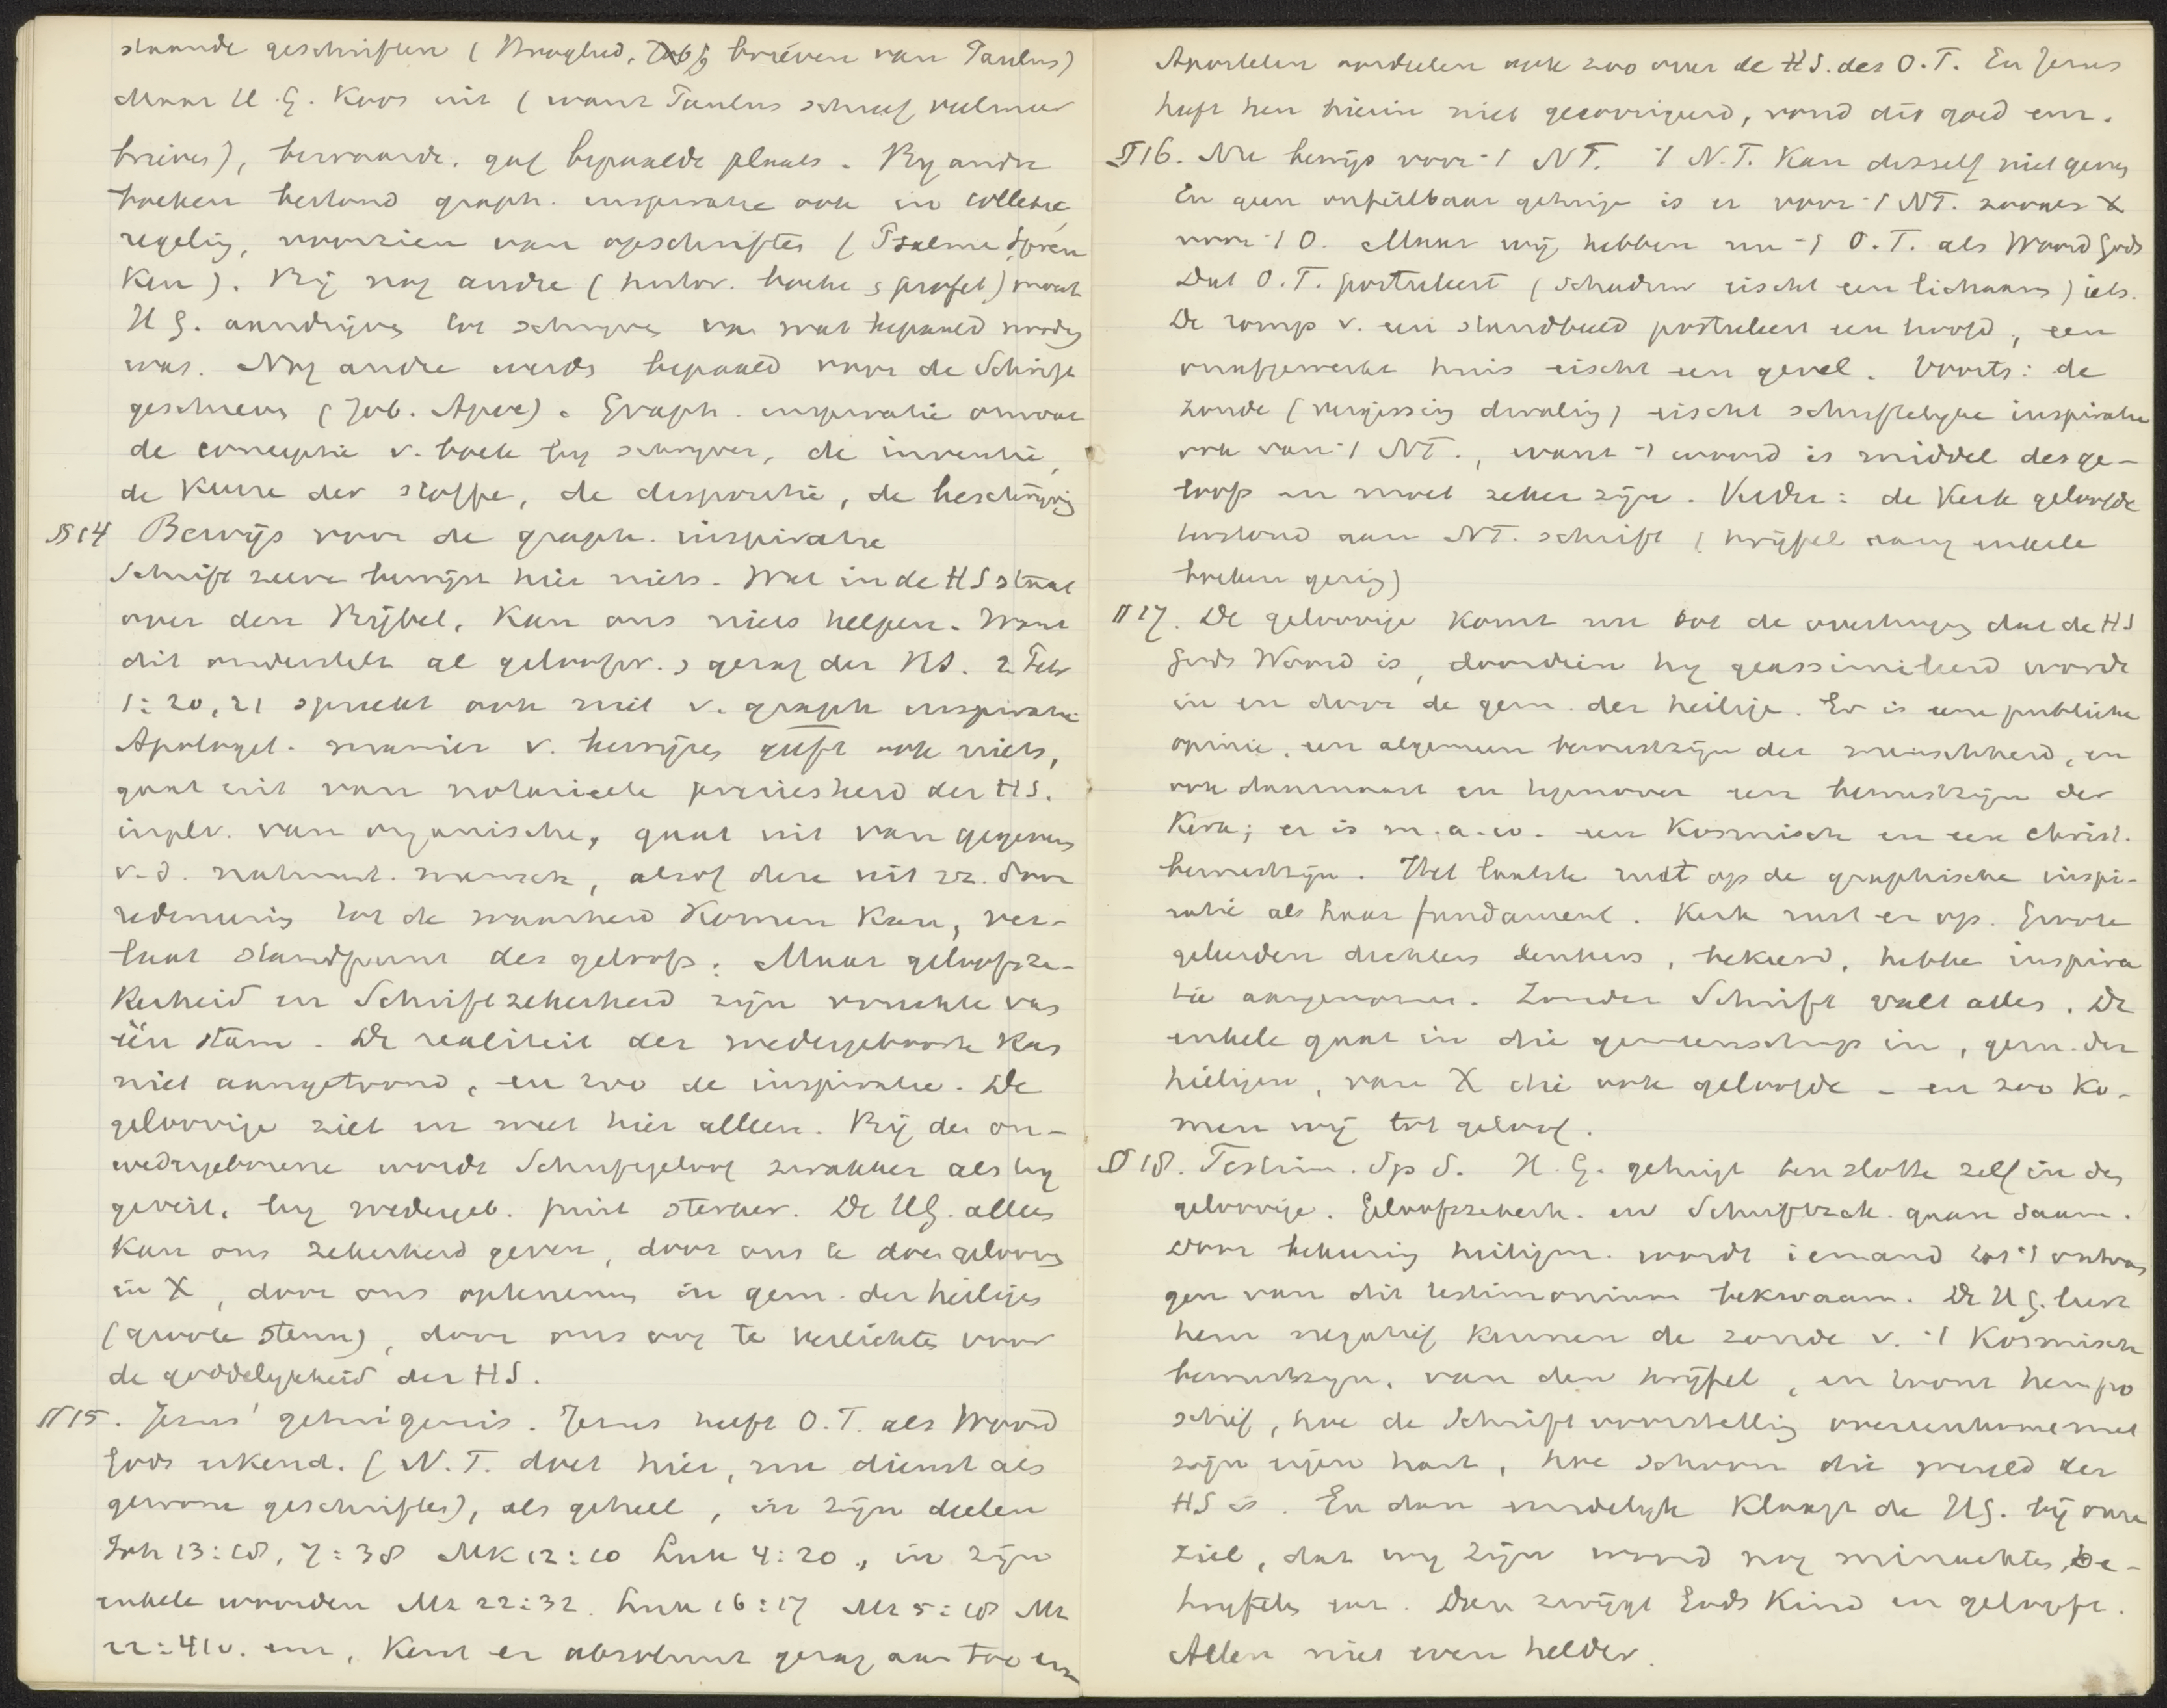 staande geschriften (Hooglied, brieven van Paulus)
Maar H.G. koos uit (want Paulus schreef veel meer
brieven), bewaarde, gaf bepaalde plaats. By andre
boeken bestond graph. inspiratie ook in collectie
regeling, voorzien van opschriften (Psalmen, Spreu
ken). Bij nog andre (histor. boeken, profet) moest
H.G. aandrijven tot schrijven van wat bepaald nodig
was. Nog andre werds bepaald voor de Schrift
geschreven (Job. Apoc). Graph. inspiratie omvat
de conceptie v. boek by schryver, de inventie,
de keuze der stoffe, de dispositie, de beschrijving
§14 Bewijs voor de graph. inspiratie
Schrift zelve bewijst hier niets. Wat in de HS staat
over den Bijbel, kan ons niets helpen. Want
dit onderstelt al geloofw. gezag der HS. 2 Petr
1:20,21 spreekt ook niet v. graph inspiratie
Apologet. manier v. bewijzen geeft ook niets,
gaat uit van notarieele preciesheid der HS.
inplv. van organische, gaat uit van gegevens
v.d. natuurl. mensch, alsof deze uit zz. door
redeneering tot de waarheid komen kan, ver-
laat standpunt des geloofs. Maar geloofsze-
kerheid en Schriftzekerheid zijn vruchten van
één stam. De realiteit der wedergeboorte kan
niet aangetoond, en zoo de inspiratie. De
geloovige ziet en weet hier alleen. Bij den on-
wedergeborene wordt Schriftgeloof zwakker als hy
, by wedergeb. juist sterker. De HG. alleen
kan ons zekerheid geven, door ons te doen gelooven
in X, door ons opnemen in gem. der heiligen
(groote steun), door ons oog te verlichten voor
de goddelykheid der HS.
§15. Jezus' getuigenis. Jezus heeft O.T. als Woord
Gods erkend. (N.T. doet hier, nu dienst als
gewone geschriften), als geheel, in zijn deelen
Joh 13:18, 7:38 Mk 12:10 Luk 4:20, in zijn
enkele woorden Mt 22:32. Luk 16:17 Mt 5:18 Mt
22:41v. enz, kent er absoluut gezag aan toe enz
Apostelen oordeelen ook zoo over de HS. des O.T. En Jezus
heeft hen hierin niet gecorrigeerd, vond dit goed enz.
§16. Nu bewijs voor 't NT. 't N.T. kan dit zelf niet geven
En geen onfeilbaar getuige is er voor 't NT. zooals X
voor 't O. Maar wij hebben nu 't O.T. als Woord Gods
Dat O.T. postuleert (schaduw eischt een lichaam) iets.
De romp v. een standbeeld postuleert een hoofd, een
onafgewerkt huis eischt een gevel. Voorts: de
zonde (vergissing dwaling) eischt schriftelyke inspiratie
ook van 't NT., want 't woord is middel des ge-
loofs en moet zeker zijn. Verder: de Kerk geloofde
terstond aan NT. schrift (twijfel rang enkele
boeken gering)
§17. De geloovige komt nu tot de overtuiging dat de HS
Gods Woord is, doordien hy geassimileerd wordt
in en door de gem. der heilige. Er is een publieke
opinie, een algemeen bewustzijn der menschheid, en
ook daarnaast en hiertegenover een bewustzijn der
Kerk; er is m.a.w. een kosmisch en een christ.
bewustzijn. Het laatste rust op de graphische inspi-
ratie als haar fundament. Kerk rust er op. Groote
geleerden dichters denkers, bekeerd, hebben inspira
tie aangenomen. Zonder Schrift valt alles. De
enkele gaat in die gemeenschap in, gem. der
heiligen, van X die ook geloofde – en zoo ko-
men wij tot geloof.
§18. Testim. Sp S. H.G. getuigt ten slotte zelf in den
geloovige. Geloofszekerh. en Schriftzek. gaan saam.
Door bekeering heiligm. wordt iemand tot 't ontvan
gen van dit testimonium bekwaam. De H.G. leert
hem negatief kennen de zonde v. 't kosmisch
bewustzyn, van den twijfel, en toont hem po
sitief, hoe de Schrift voorstelling overeenkomt met
zijn eigen hart, hoe schoon die wereld der
HS is. En dan eindelyk klaagt de HG. bij onze
ziel, dat wy zijn woord nog minachten, be-
twyfelen enz. Dan zwijgt Gods Kind en gelooft.
Allen niet even helder.